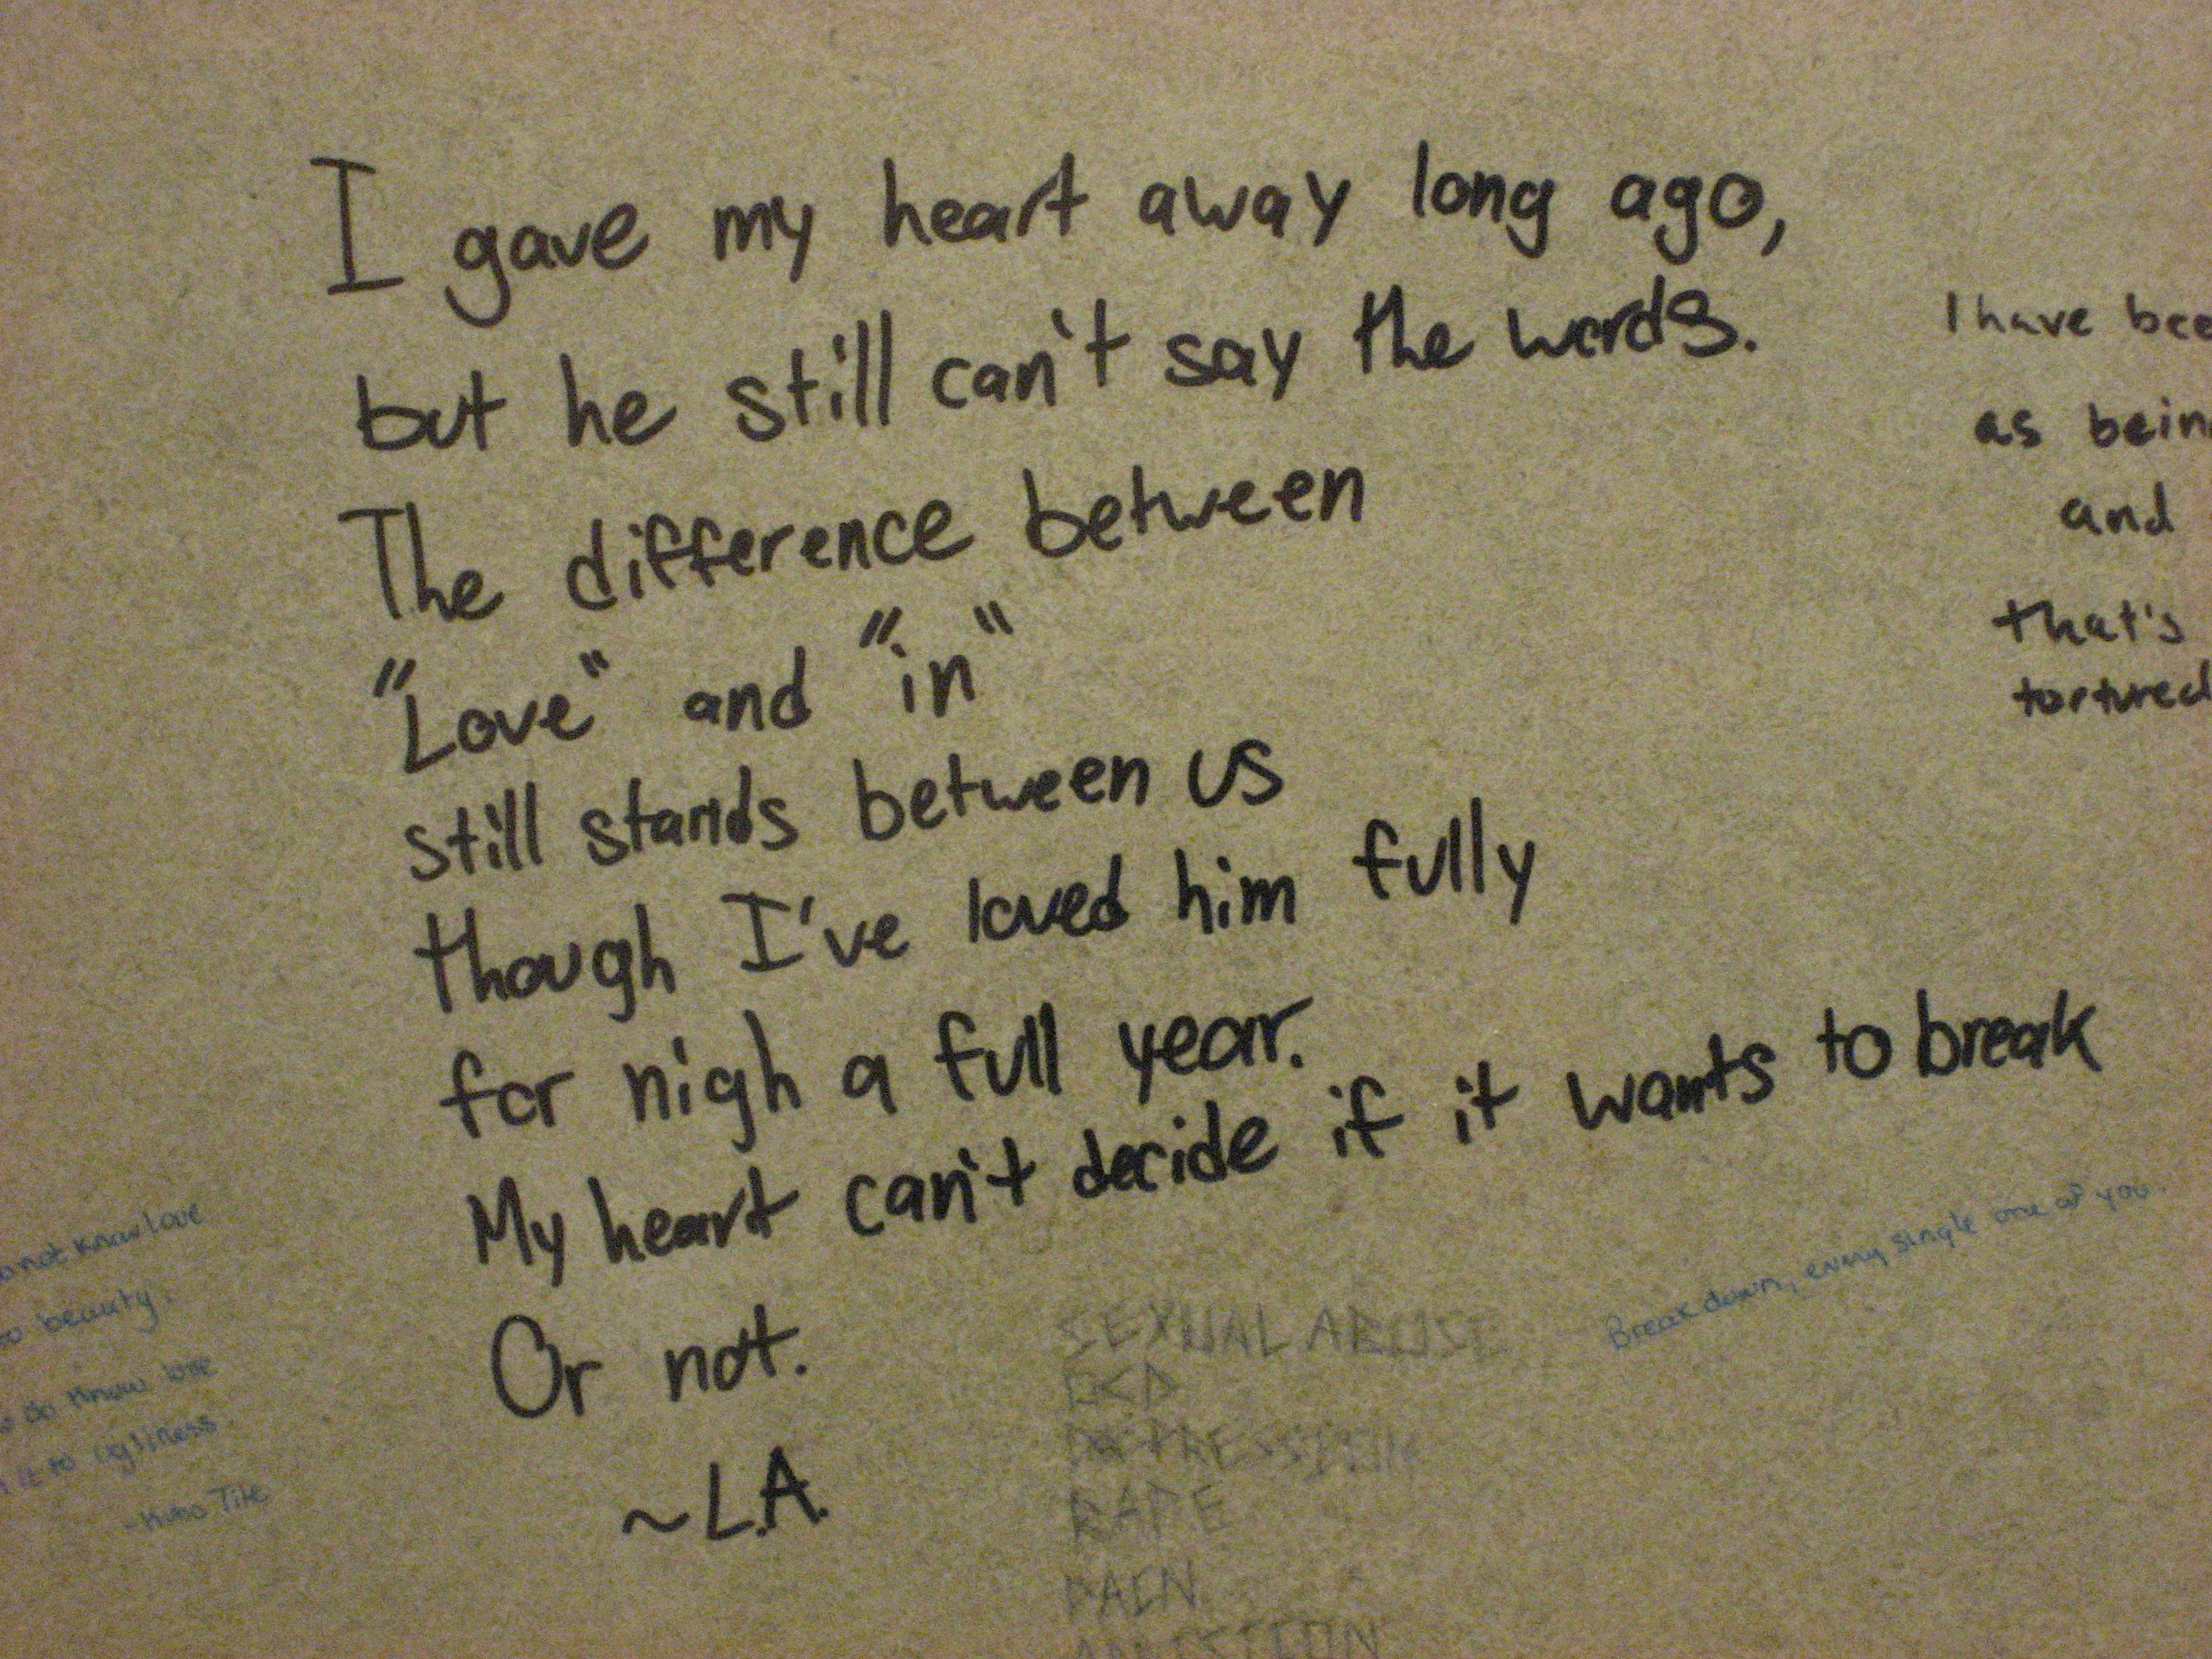 I gave my heart away long ago,
but he still can't say the words.
The difference between
"Love" and "in"
still stands between us
though I've loved him fully
for nigh a full year.
My heart can't decide if it wants to break
Or not.
~L.A.
I have
as
and
that's
tortured
not know love
beauty.
know love
it to ugliness
Break down, every single one of you.
SEXUAL ABUSE
DEPRESSION
RAPE
PAIN